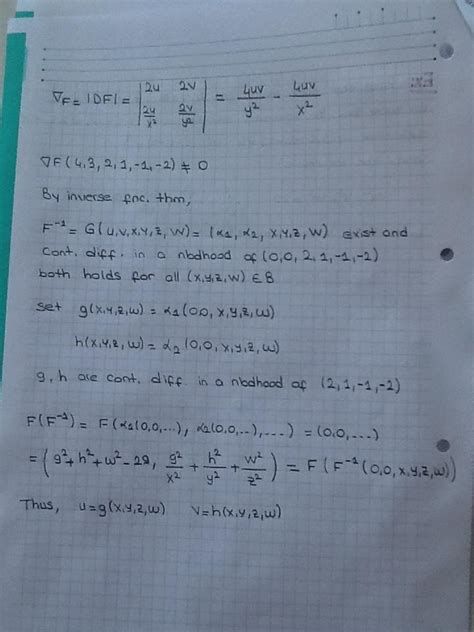 ∇F = |DF| = | 2u 2v ; 2u/x² 2v/y² | = 4uv/y² - 4uv/x²
∇F(4,3,2,1,-1,-2) ≠ 0
By inverse fnc. thm,
F⁻¹ = G(u,v,x,y,z,w) = (α₁, α₂, x,y,z,w) exist and
cont. diff. in a nbdhood of (0,0,2,1,-1,-2)
both holds for all (x,y,z,w) ∈ B
set g(x,y,z,w) = α₁(0,0,x,y,z,w)
h(x,y,z,w) = α₂(0,0,x,y,z,w)
g,h are cont. diff. in a nbdhood of (2,1,-1,-2)
F(F⁻¹) = F(α₁(0,0,...), α₂(0,0,..),...) = (0,0,...)
= (g²+h²+w²-29, g²/x² + h²/y² + w²/z²) = F(F⁻¹(0,0,x,y,z,w))
Thus, u=g(x,y,z,w) v=h(x,y,z,w)